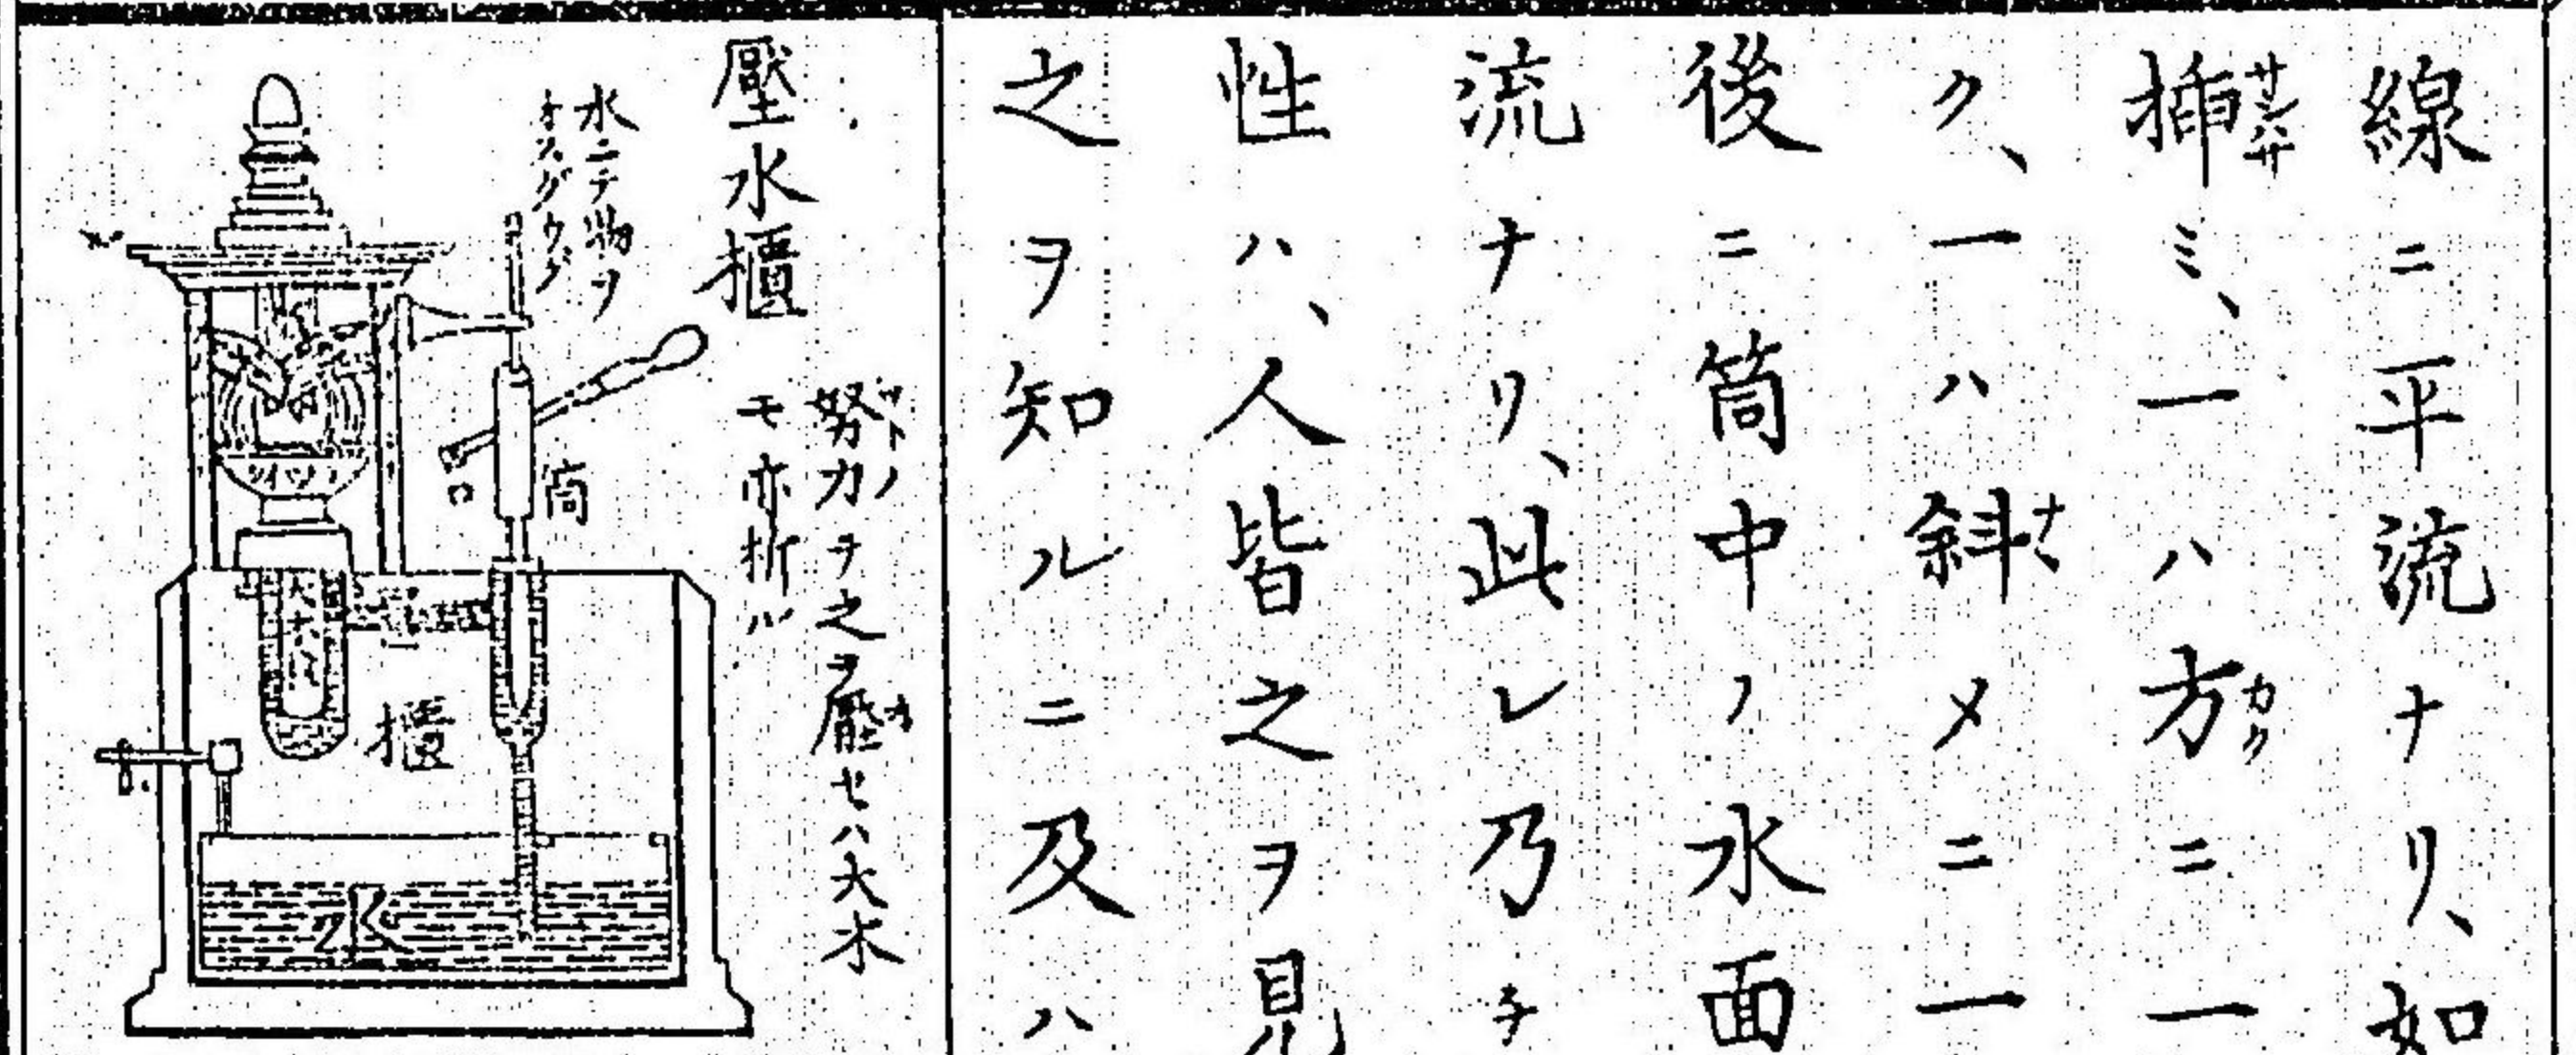 線ニ平流ナリ、如
挿ミ、一ハ方ニ一
ク、一ハ斜メニ一
後ニ筒中ノ水面
流ナリ、此レ乃チ
性ハ、人皆之ヲ見
之ヲ知ルニ及ハ
カク
ナヽ
壓水櫃
水ニテ物ヲ
オスダウグ
努力ヲ之ヲ壓セハ大木
モ亦折ル
筒
櫃
水